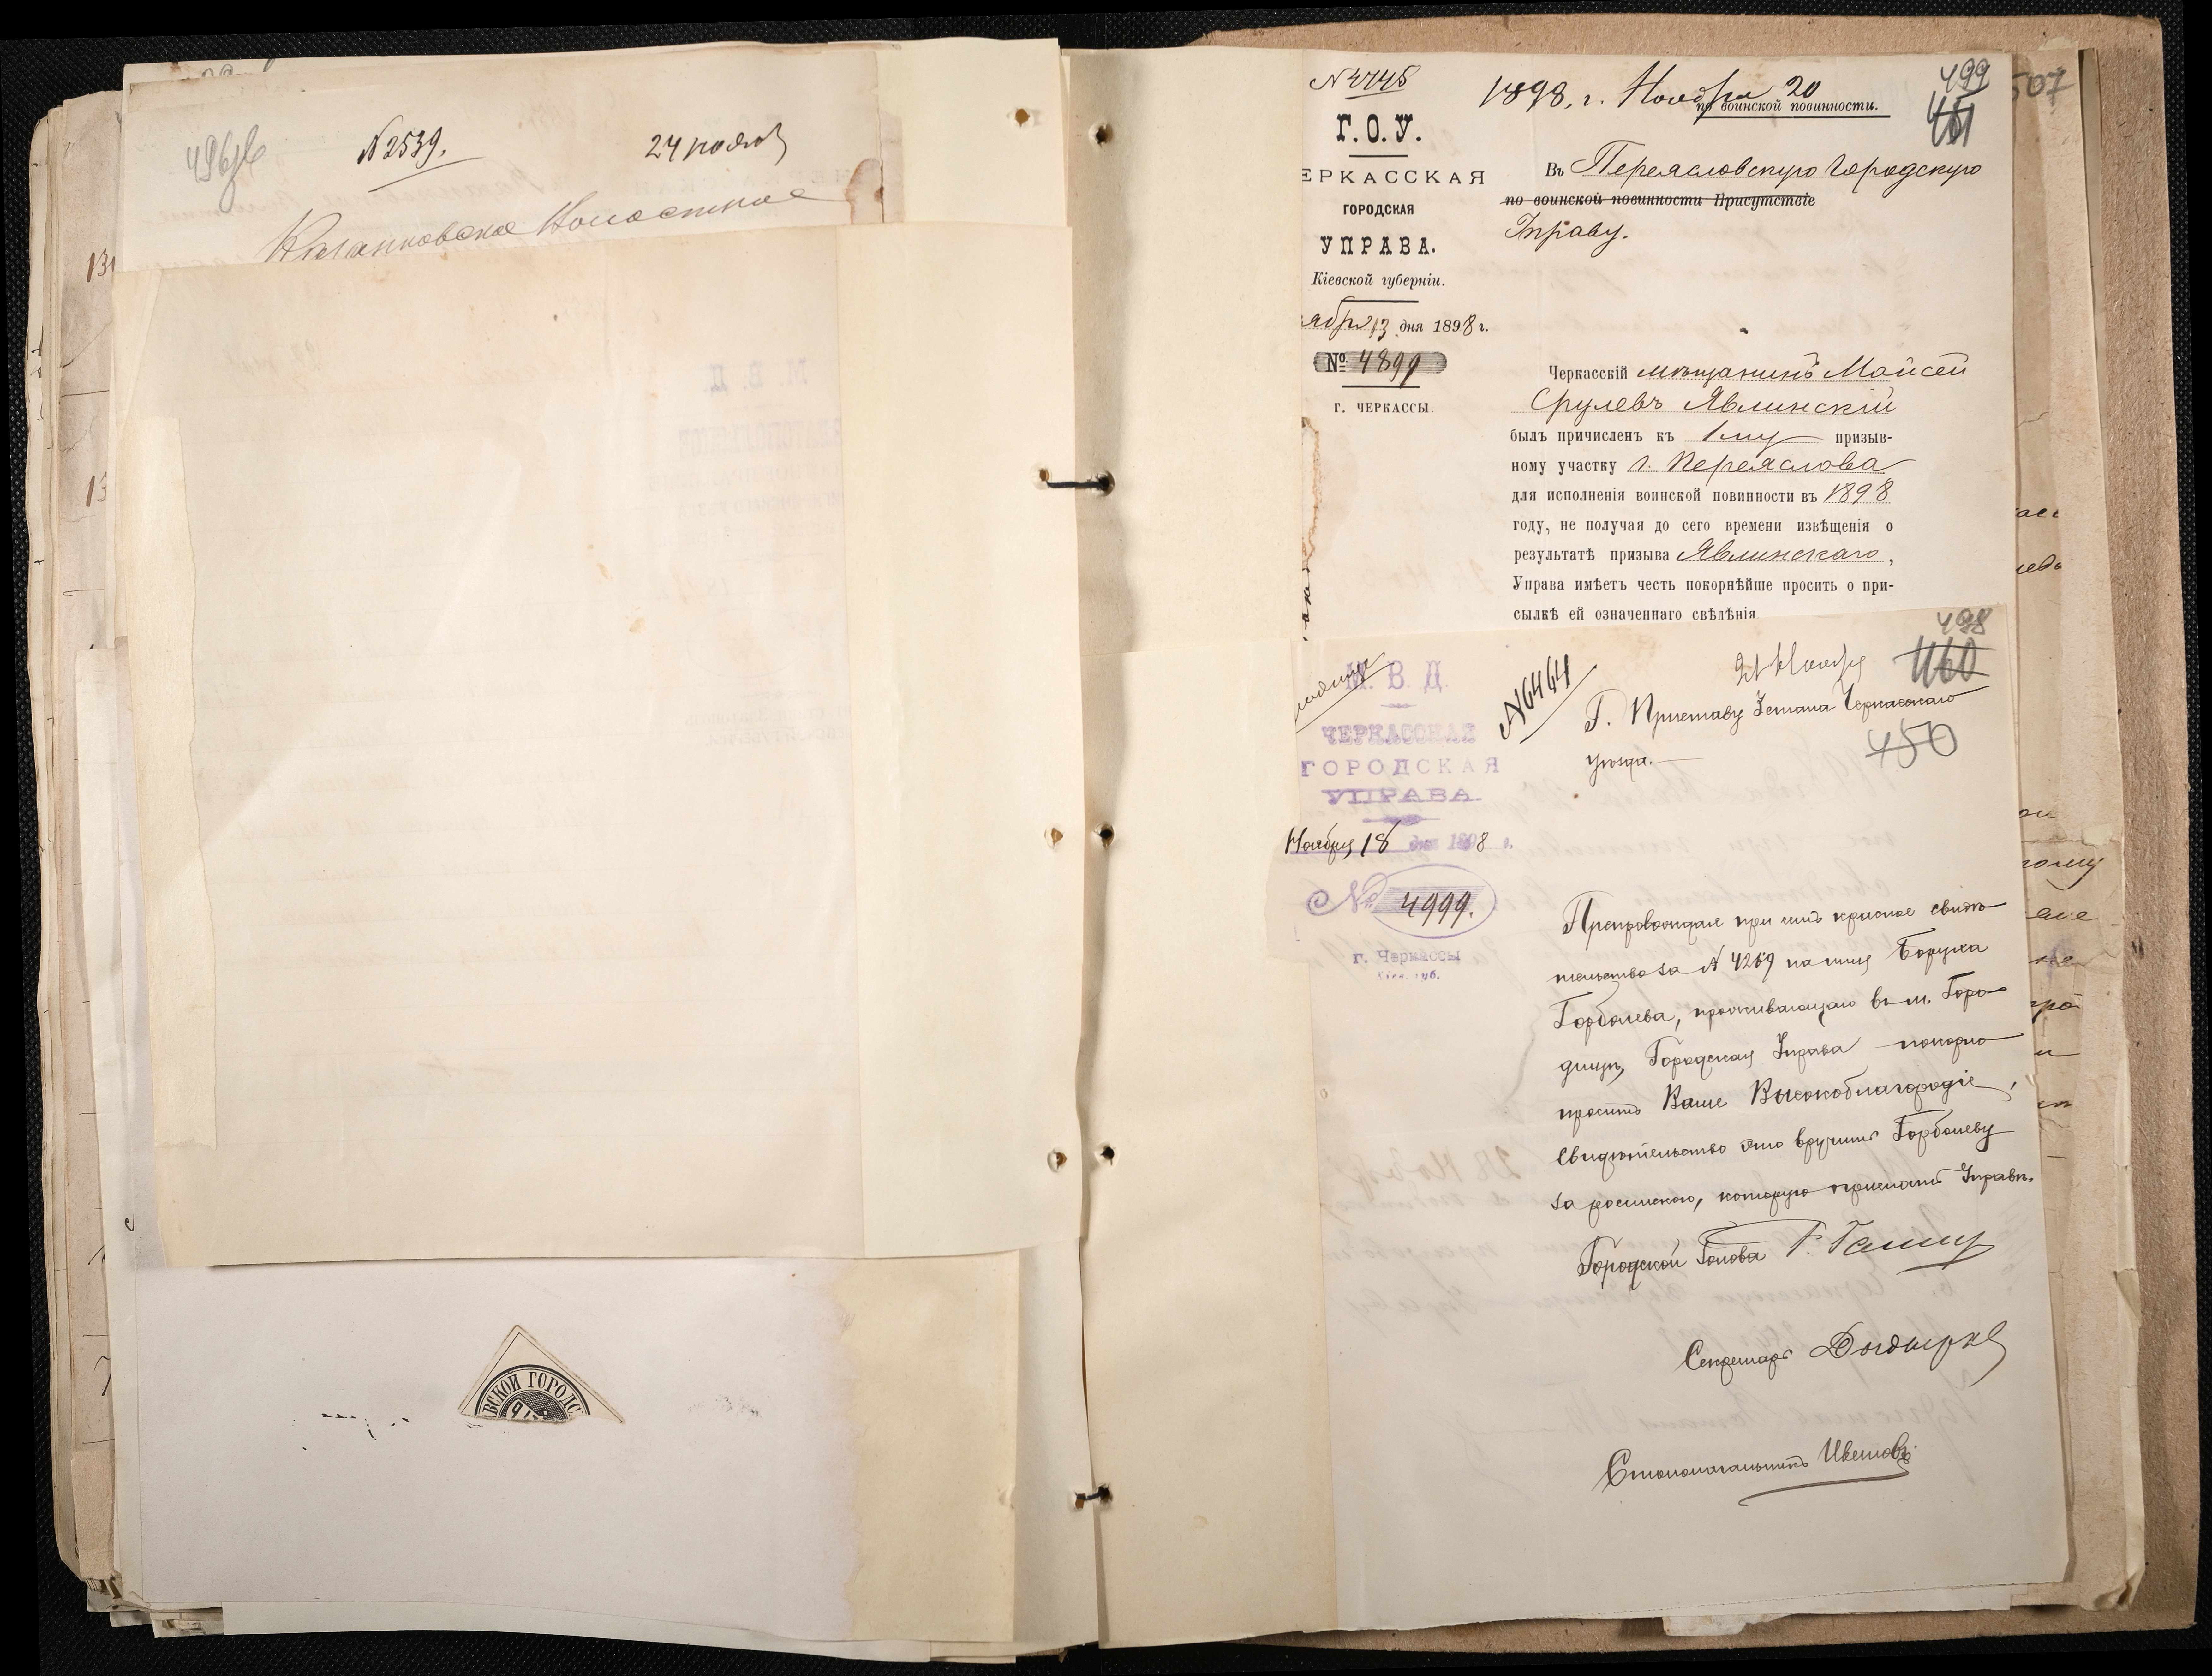 № 2539.
24 нояб
Волостное
ВСКОЙ ГОРОДС
№ 4745
1898, г. Ноября 20
499
по воинской повинности.
451
507
Г.О.У.
ЕРКАССКАЯ
ГОРОДСКАЯ
УПРАВА.
Кіевской губерніи.
ября 13 дня 1898 г.
№ 4899
г. ЧЕРКАССЫ.
Въ Переяславскую Городскую
по воинской повинности Присутствіе
Управу.
Черкасскій мѣщанинъ Мойсей
Срулевъ Явлинскій
былъ причисленъ къ 1му призыв-
ному участку г. Переяслова
для исполненія воинской повинности въ 1898
году, не получая до сего времени извѣщенія о
результатѣ призыва Явлинскаго,
Управа имѣетъ честь покорнѣйше просить о при-
сылкѣ ей означеннаго свѣдѣнія
498
460
21 Ноября
№ 6464
450
М. В. Д.
ЧЕРКАССКАЯ
ГОРОДСКАЯ
УПРАВА
Ноября 18 дня 1898 г.
№ 4999.
г. Черкассы
Кіев. губ.
Г. Приставу Істана Черкасскаго
уѣзда.
Препровождая при семъ красное свидѣ
тельство за № 4269 на имя Боруха
Горболева, проживающаго въ м. Горо
дищѣ, Городская Управа покорно
проситъ Ваше Высокоблагородіе,
свидѣтельство это вручить Горболеву
за роспискою, которую прислать Управѣ.
Городской Голова
Секретарь
Столоначальникъ